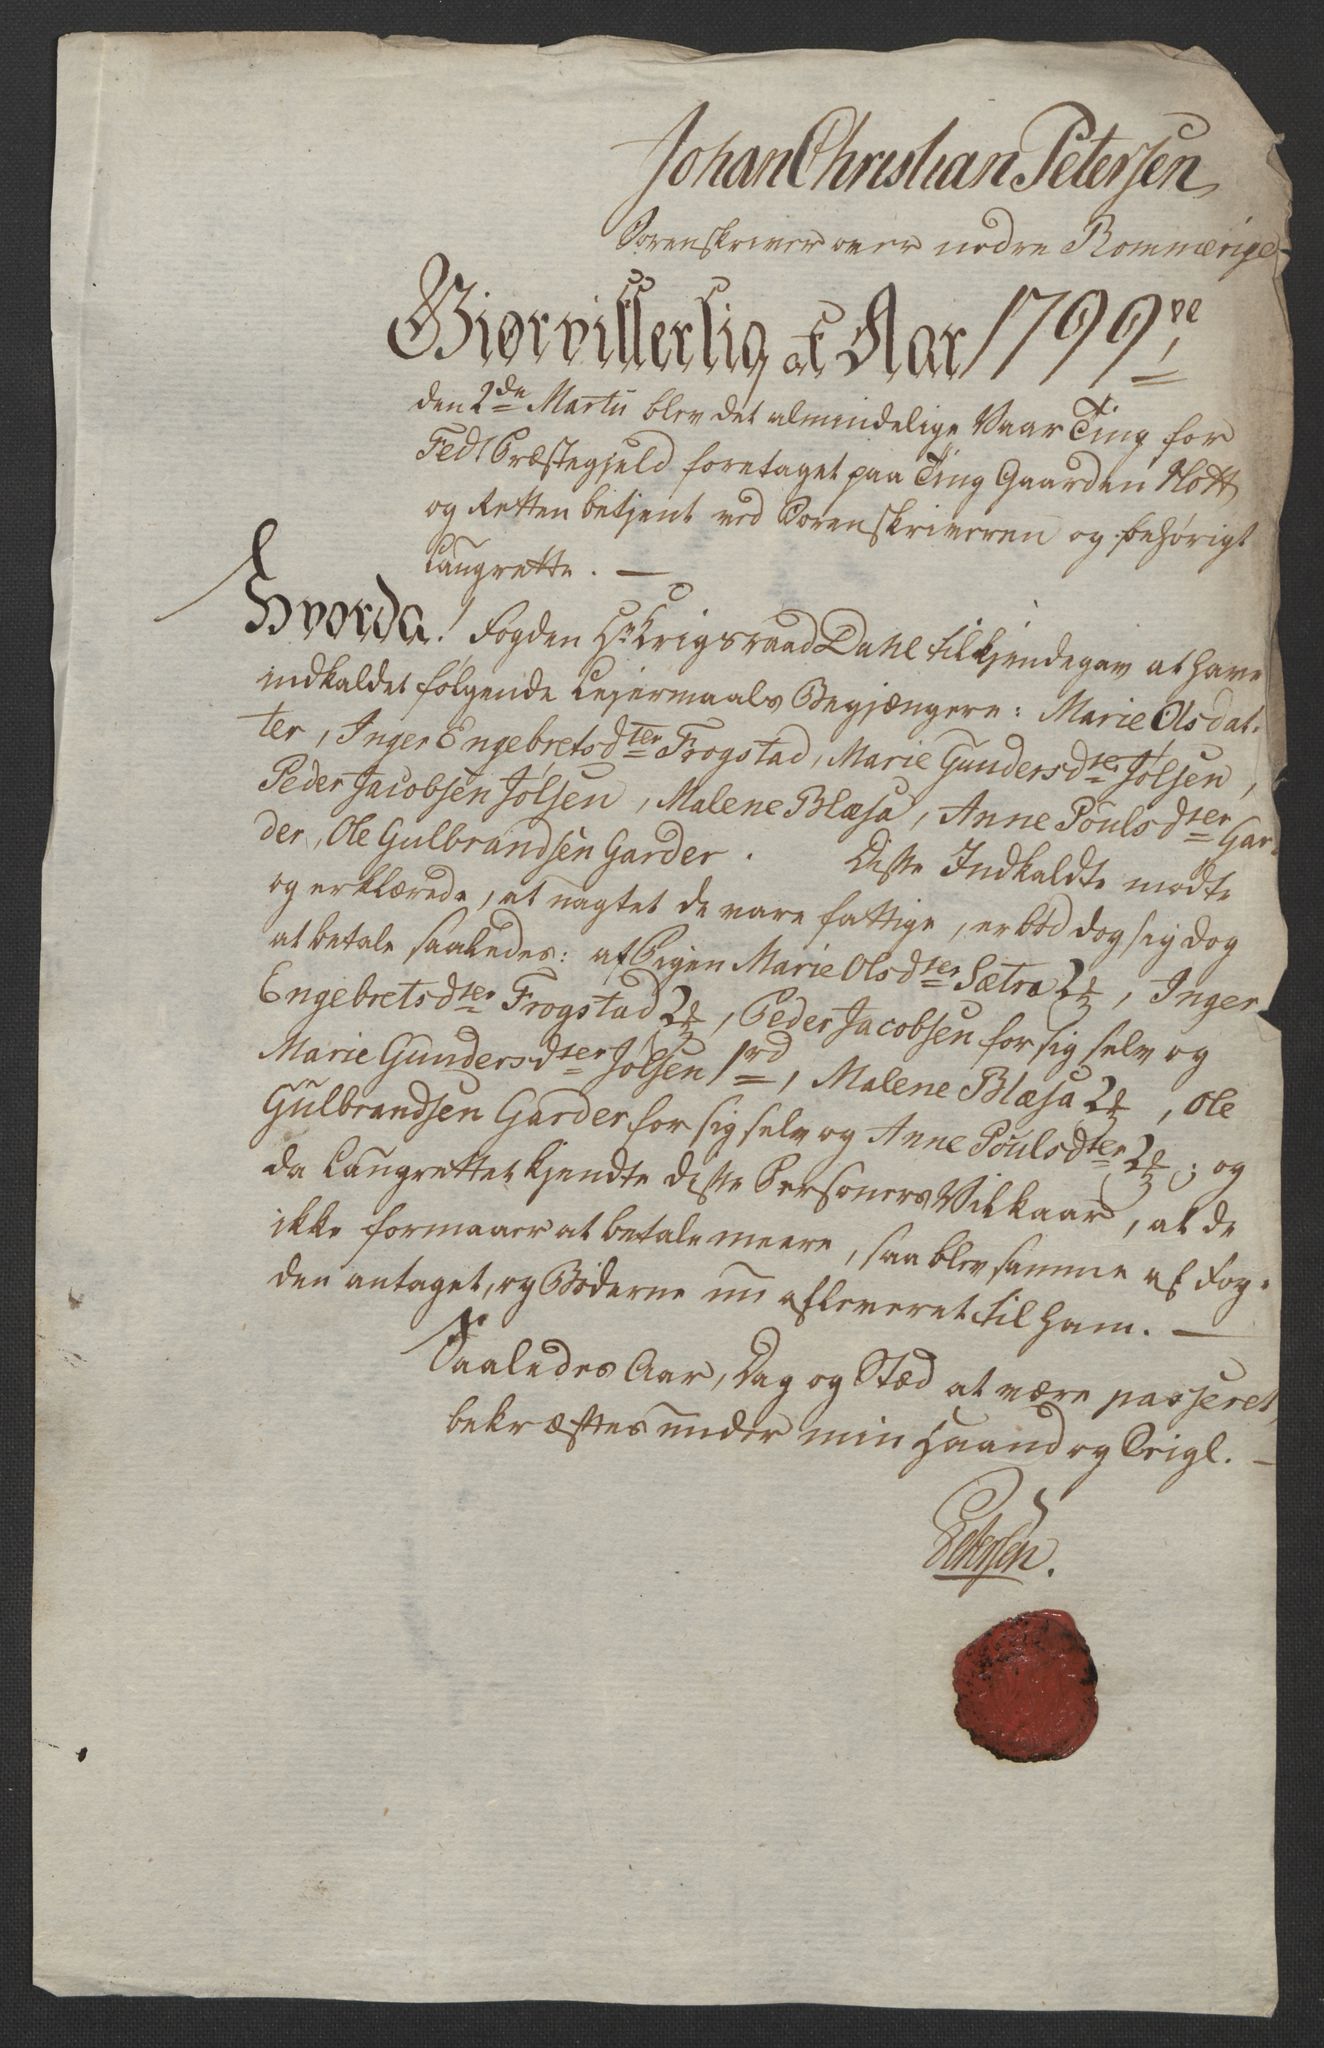 Johan Christian Petersen
Sorenskriver over nedre Rommerige
Giør vitterlig at Aar 1799,
den 2de Martii blev det almindelige Vaar Ting for
Fedt Præstegjeld foretaget paa Ting Gaarden
og Retten betjent ved Sorenskriveren og behørigt
Laugrette. —
Hvorda! Fogden Hr Krigsraad Dahl tilkjendegav at have
indkaldet følgende Lejermaals Begjængere: Marie Olsdat-
ter, Inger Engebretsdter Frogstad, Marie Gundersdter Jølsen,
Peder Jacobsen Jølsen, Malene Blæsa, Anne Poulsdter Gar-
der, Ole Gulbrandsen Garder. Disse Indkaldte mødte
og erklærede, at uagtet de vare fattige, erbød dog sig dog
at betale saaledes: af Pigen Marie Olsdter Sætra 2 , Inger
Engebretsdter Frogstad 2 , Peder Jacobsen for sig selv og
Marie Gundersdter Jølsen 1 rd, Malene Blæsa 2 , Ole
Gulbrandsen Garder for sig selv og Anne Poulsdter 2 ; og
da Laugrettet kjendte disse Personers Vilkaar, at de
ikke formaaer at betale meere, saa blev samme af Fog-
den antaget, og Bøderne nu afleveret til ham. —
Saaledes Aar, Dag og Stæd at være passeret,
bekræftes under min Haand og Seigl. —
Petersen.